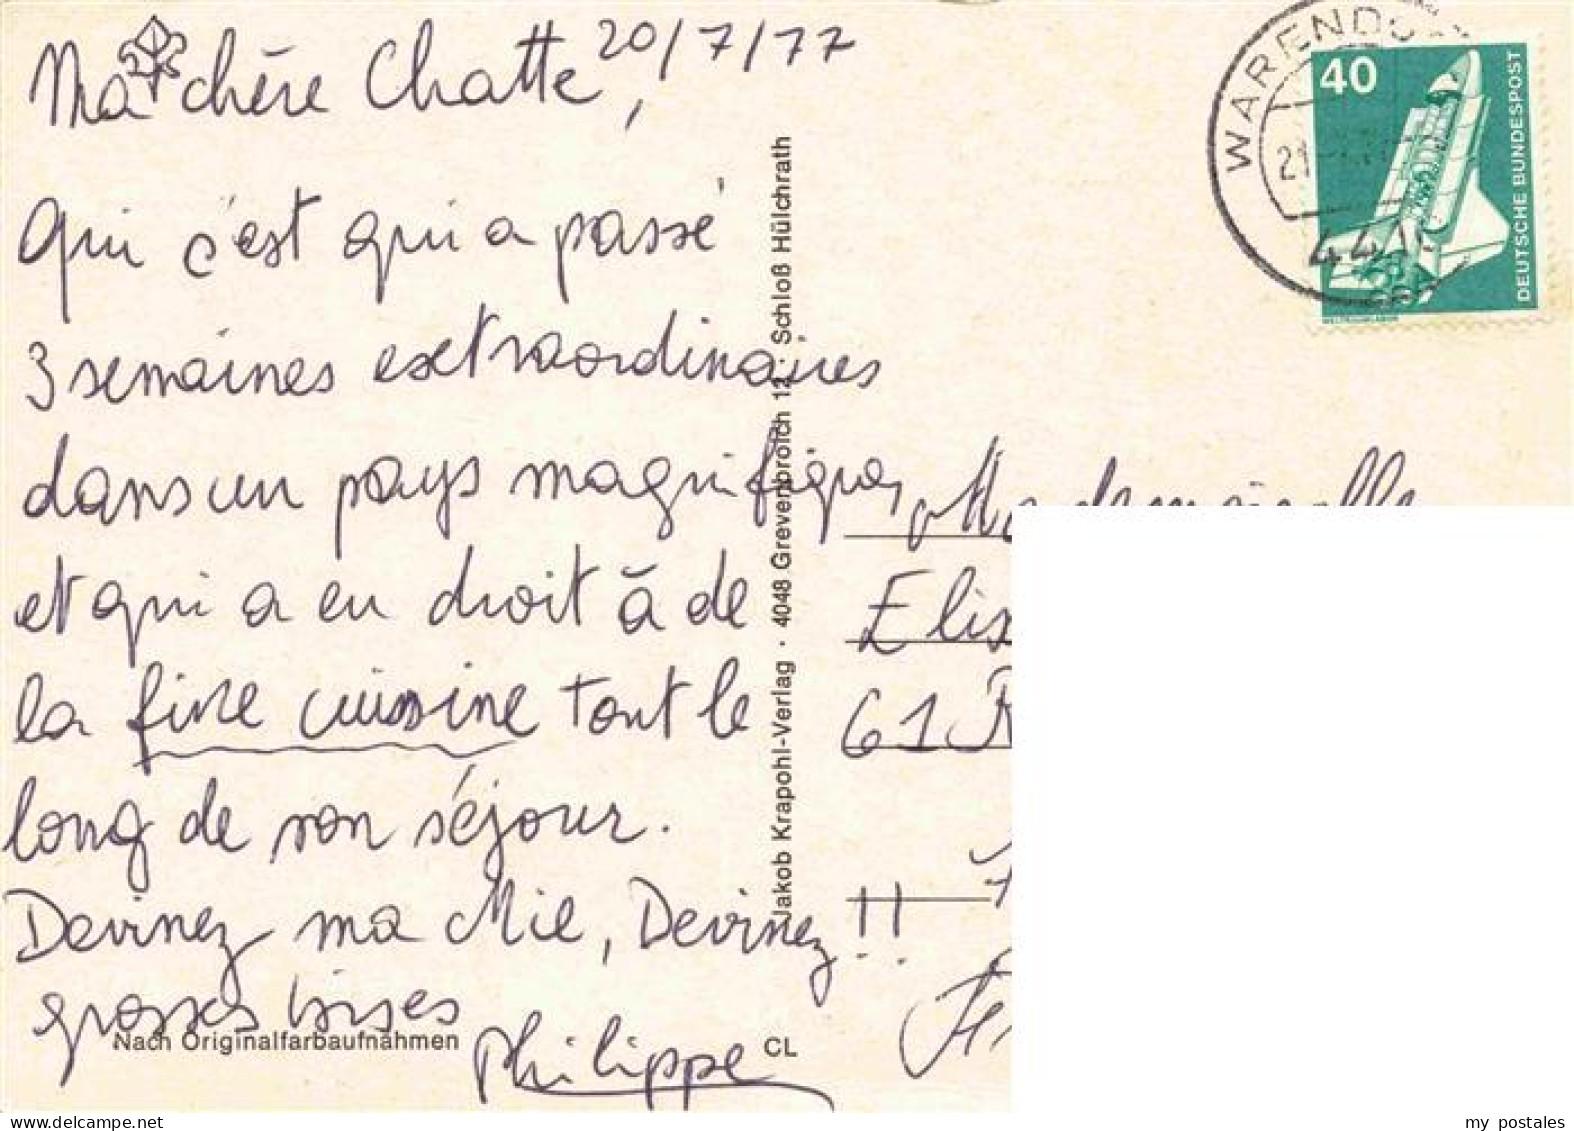 Ma chère Chatte, 20/7/77
Qui c'est qui a passé
3 semaines extraordinaires
dans un pays magnifique,
et qui a eu droit à de
la fine cuisine tout le
long de son séjour.
Devinez ma Mie, Devinez!!
grosses bises
Philippe
Nach Originalfarbaufnahmen
CL
Jakob Krapohl-Verlag · 4048 Grevenbroich 12 · Schloß Hülchrath
WARENDO
21
441
40
DEUTSCHE BUNDESPOST
Mademoiselle
Elis
61 R
my postales